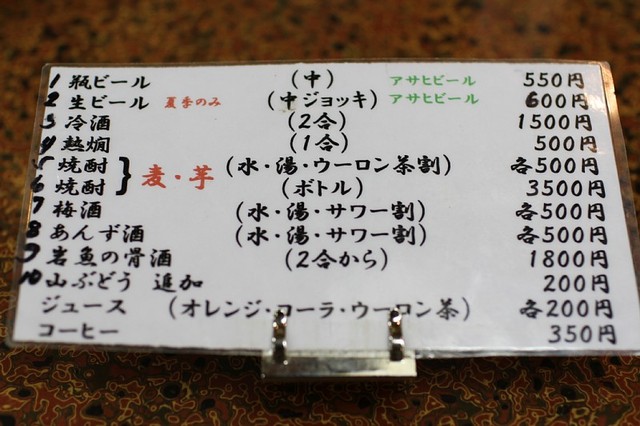 1 瓶ビール (中) アサヒビール 550円
2 生ビール 夏季のみ (中ジョッキ) アサヒビール 600円
3 冷酒 (2合) 1500円
4 熱燗 (1合) 500円
5 焼酎 } 麦・芋 (水・湯・ウーロン茶割) 各500円
6 焼酎 (ボトル) 3500円
7 梅酒 (水・湯・サワー割) 各500円
8 あんず酒 (水・湯・サワー割) 各500円
9 岩魚の骨酒 (2合から) 1800円
10 山ぶどう 追加 200円
ジュース (オレンジ・コーラ・ウーロン茶) 各200円
コーヒー 350円